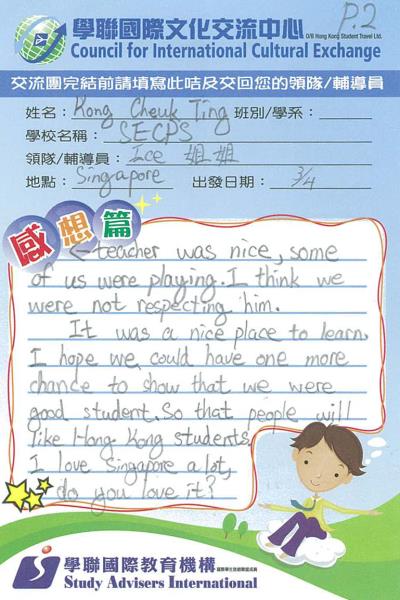 P.2
學聯國際文化交流中心
O/B Hong Kong Student Travel Ltd.
Council for International Cultural Exchange
交流團完結前請填寫此咭及交回您的領隊/輔導員
姓名：Kong Cheuk Ting 班別/學系：
學校名稱：SECPS
領隊/輔導員：Ice 姐姐
地點：Singapore 出發日期：3/4
感想篇
teacher was nice, some
of us were playing. I think we
were not respecting him.
It was a nice place to learn.
I hope we could have one more
chance to show that we were
good student. So that people will
like Hong Kong students.
I love Singapore a lot,
do you love it?
學聯國際教育機構
Study Advisers International